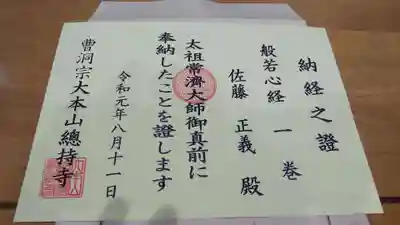 納経之證
般若心経 一巻
佐藤 正義 殿
太祖常濟大師御真前に
奉納したことを證します
令和元年八月十一日
曹洞宗大本山總持寺